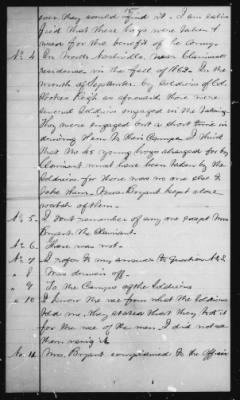 15
ever they would find it. I am satis
fied that these hogs were taken &
used for the benefit of the Army.
No 4 In North Nashville near Claimant
residence in the fall of 1862. In the
month of September by soldiers of Col.
as afterwards there were
several soldiers engaged in the taking
They were engaged but a short time in
driving them to their Camps. I think
that the 65 young hogs charged for by
Claimant must have been taken by the
soldiers for there was no one else to
take them. Mrs. Bryant kept a close
watch of them.
No 5. I don't remember of any one except Mrs.
Bryant the Claimant.
No 6. There was not.
No 7 I refer to my answer to Question No 2
" 8 Was driven off.
" 9 To the Camps of the Soldiers
" 10 I know the use from what the Soldiers
told me, they stated that they took it
for the use of the men. I did not see
them using it.
No. 11. Mrs. Bryant complained to the Officer